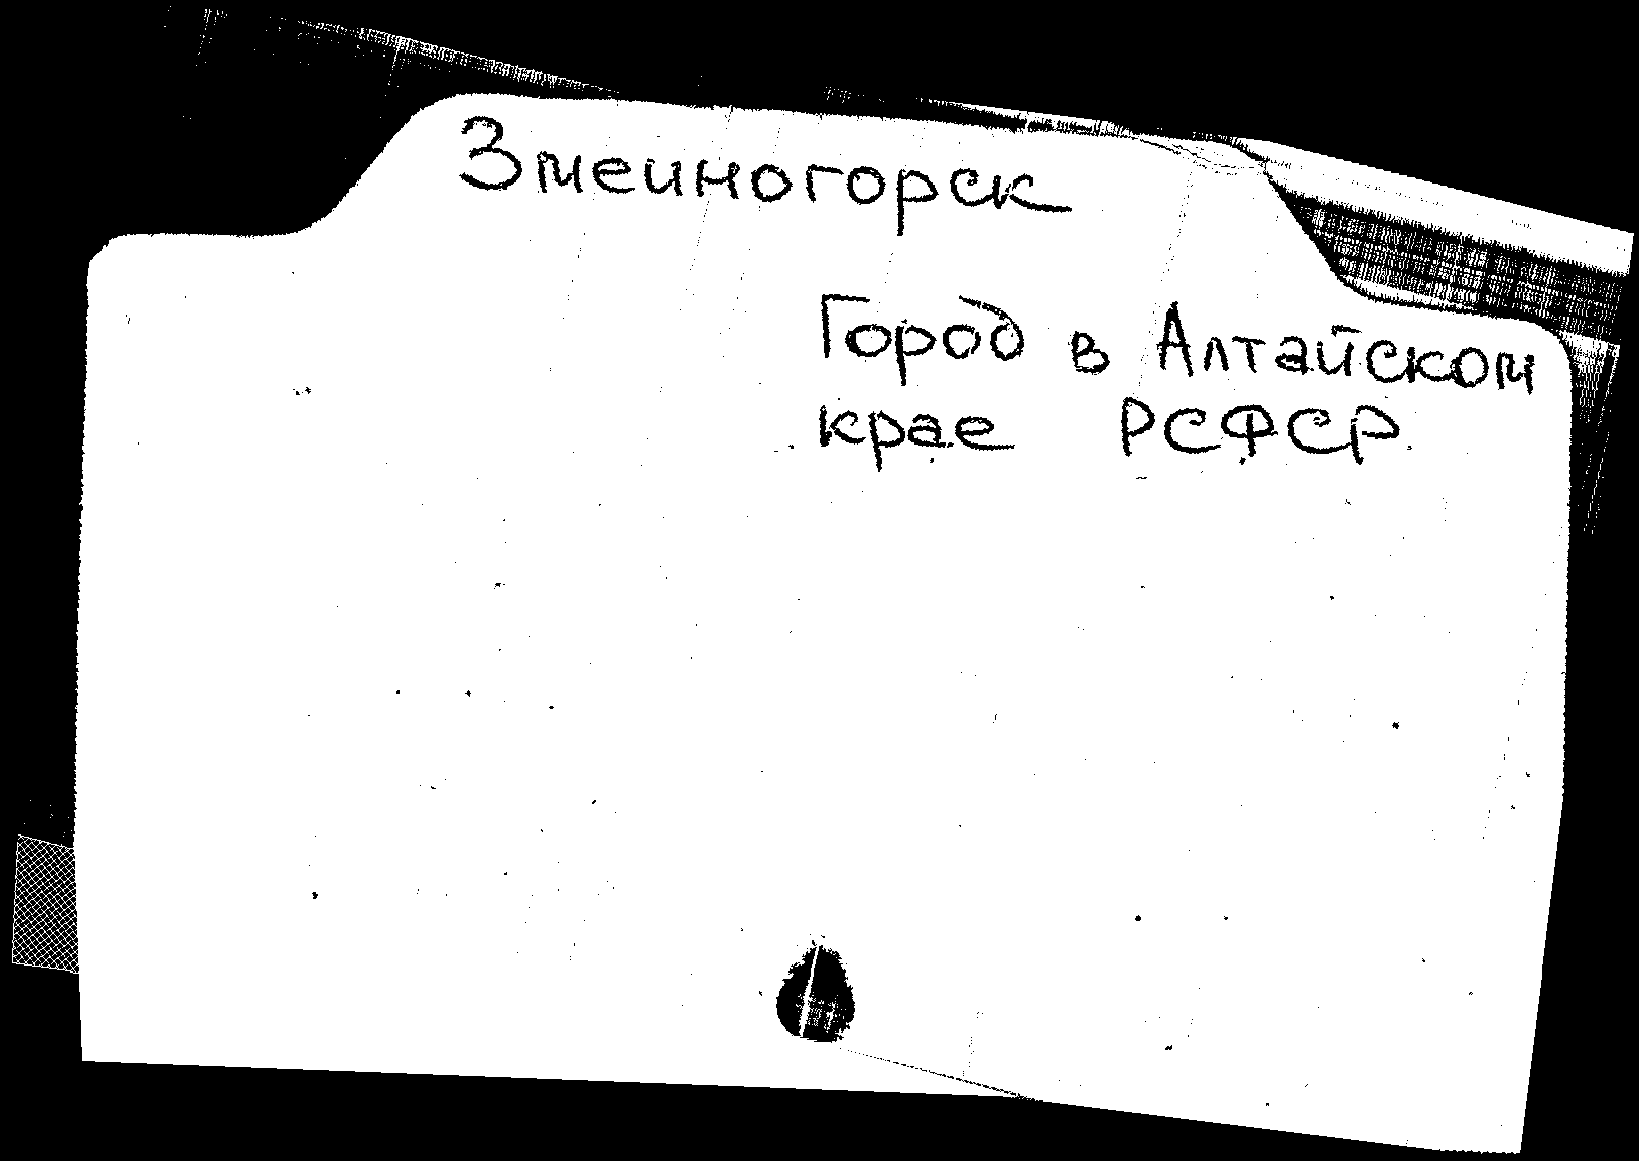 Змеиногорск
Город в Алтайском
крае РСФСР